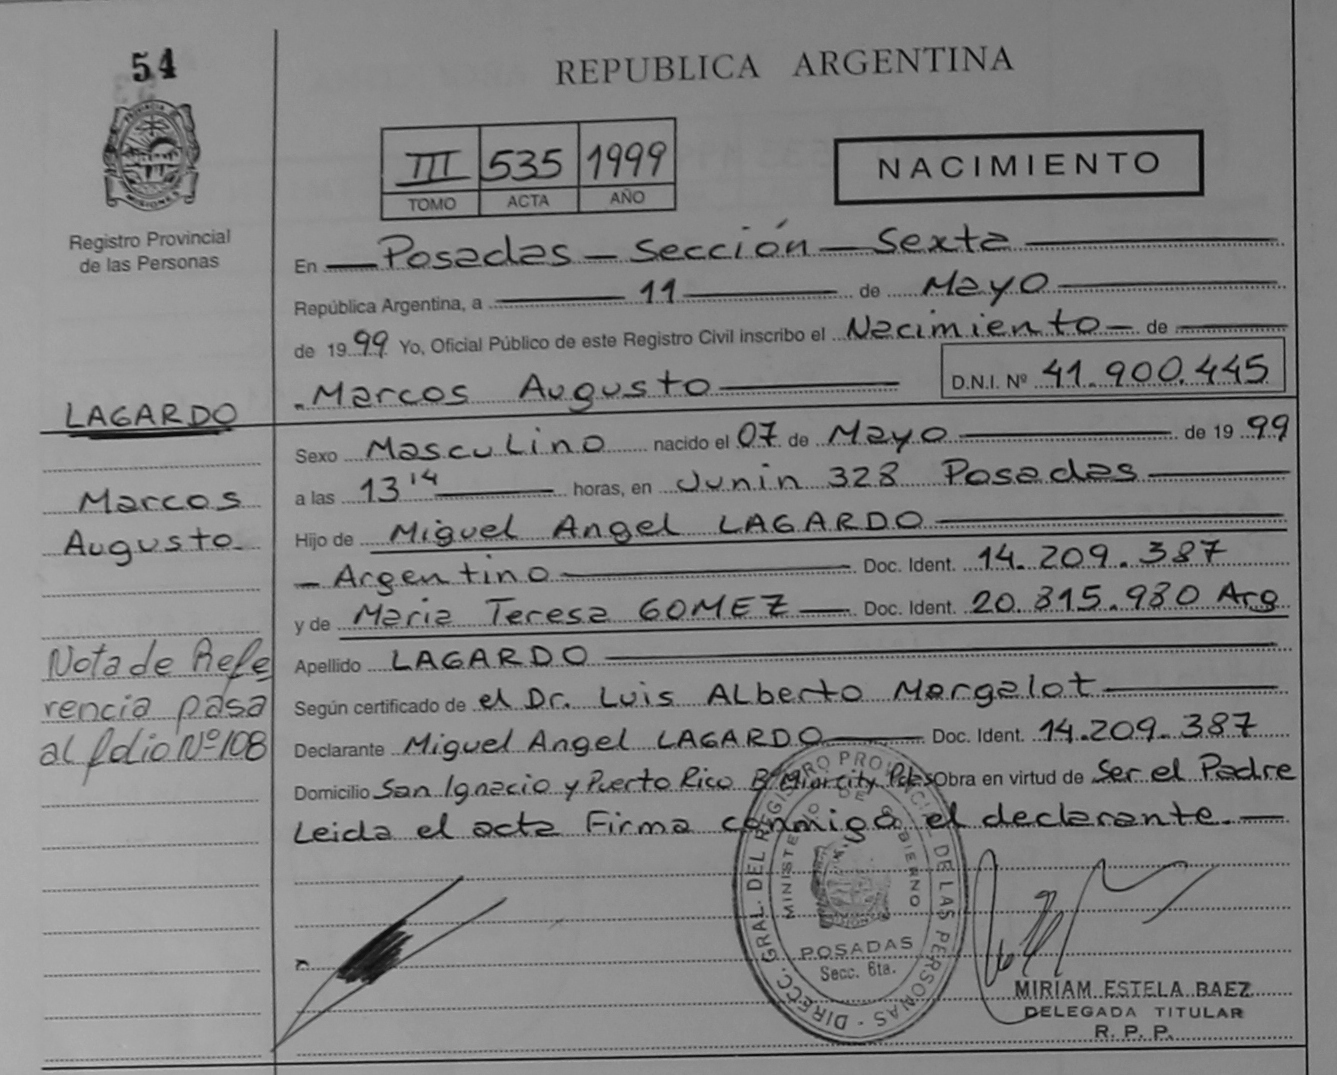 54
REPUBLICA ARGENTINA
III 535 1999
TOMO ACTA AÑO
NACIMIENTO
PROVINCIA DE
MISIONES
Registro Provincial
de las Personas
En Posadas - Sección - Sexta
República Argentina, a 11 de Mayo
de 1999 Yo, Oficial Público de este Registro Civil inscribo el Nacimiento - de
Marcos Augusto D.N.I. Nº 41.900.445
LAGARDO
Marcos
Augusto
Nota de Refe
rencia pasa
al folio Nº 108
Sexo Masculino nacido el 07 de Mayo de 1999
a las 13 14 horas, en Junin 328 Posadas
Hijo de Miguel Angel LAGARDO
- Argentino Doc. Ident. 14.209.387
y de Maria Teresa GOMEZ Doc. Ident. 20.815.980 Arg
Apellido LAGARDO
Según certificado de el Dr. Luis ALberto Margalot
Declarante Miguel Angel LAGARDO Doc. Ident. 14.209.387
Domicilio San Ignacio y Puerto Rico Obra en virtud de Ser el Padre
Leida el acta Firma conmigo el declarante.
DIRECC. GRAL. DEL REGISTRO PROVINCIAL DE LAS PERSONAS
MINISTERIO DE GOBIERNO
POSADAS
Secc. 6ta.
MIRIAM ESTELA BAEZ
DELEGADA TITULAR
R. P. P.